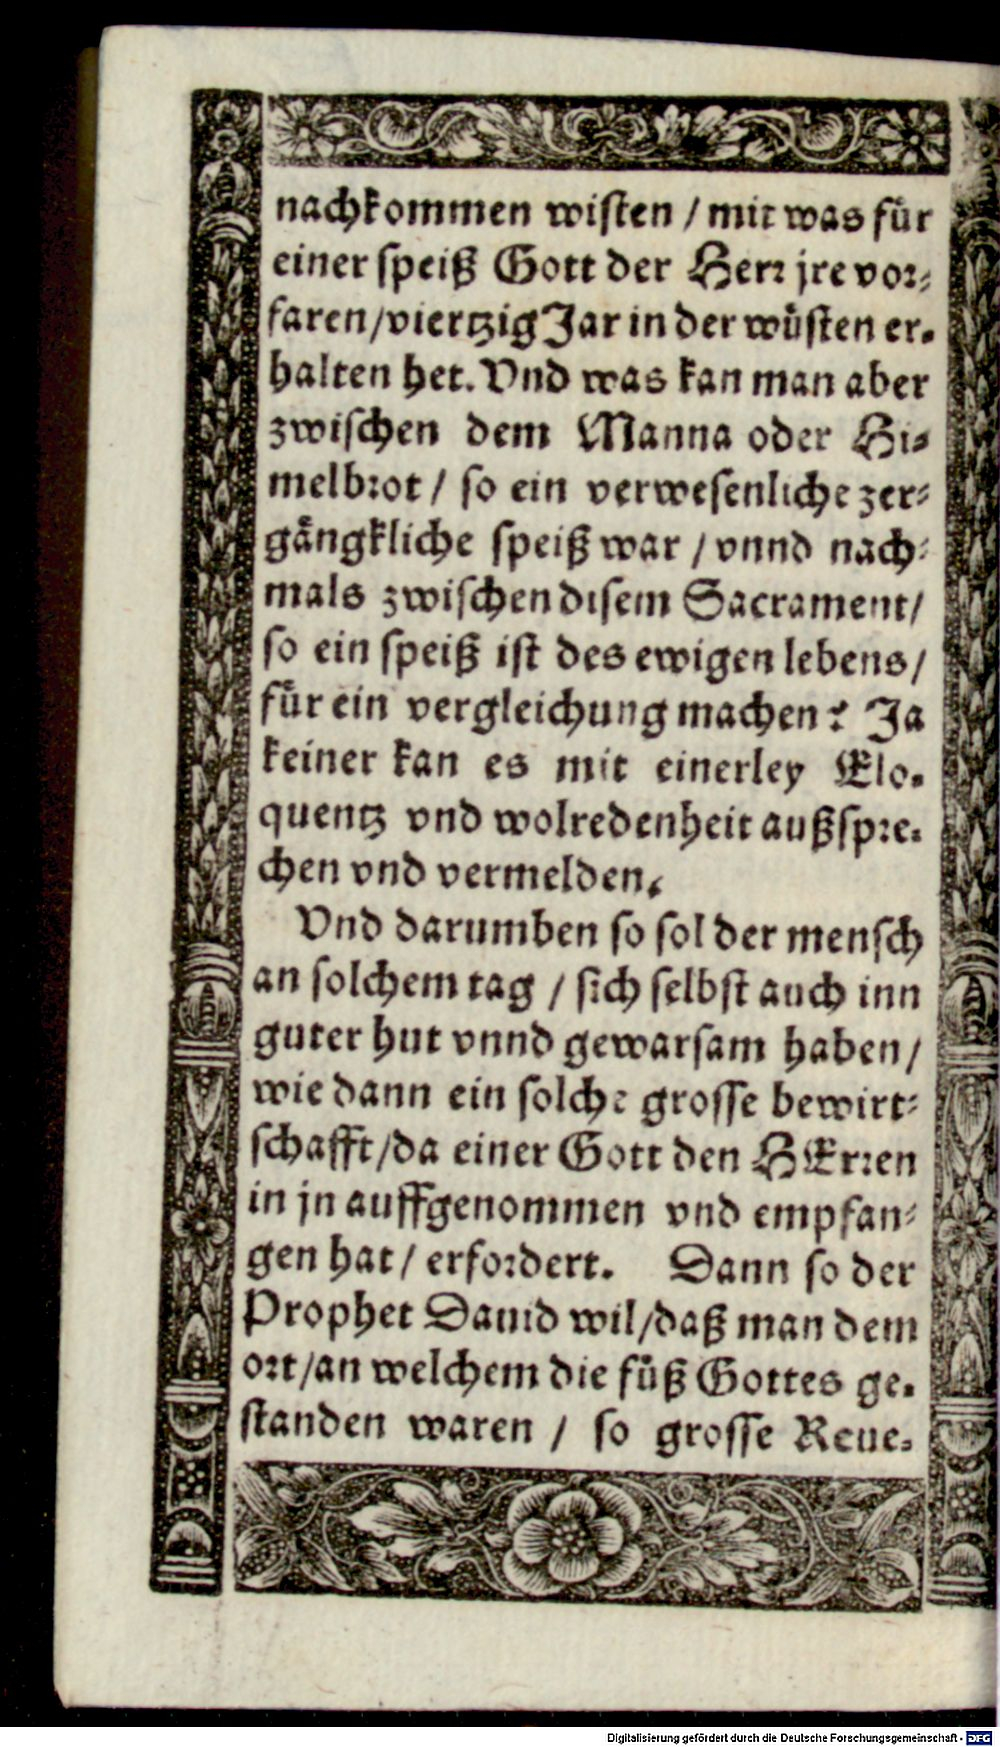 nachkommen wisten / mit was für
einer speiß Gott der Herr jre vor-
faren/viertzig Jar in der wüsten er-
halten het. Vnd was kan man aber
zwischen dem Manna oder Hi-
melbrot / so ein verwesenliche zer-
gängkliche speiß war / vnnd nach-
mals zwischen disem Sacrament/
so ein speiß ist des ewigen lebens/
für ein vergleichung machen? Ja
keiner kan es mit einerley Elo-
quentz vnd wolredenheit außspre-
chen vnd vermelden.
Vnd darumben so sol der mensch
an solchem tag / sich selbst auch inn
guter hut vnnd gewarsam haben/
wie dann ein solche grosse bewirt-
schafft/da einer Gott den HErren
in jn auffgenommen vnd empfan-
gen hat/ erfordert. Dann so der
Prophet Dauid wil/daß man dem
ort/an welchem die füß Gottes ge-
standen waren / so grosse Reue-
Digitalisierung gefördert durch die Deutsche Forschungsgemeinschaft - DFG